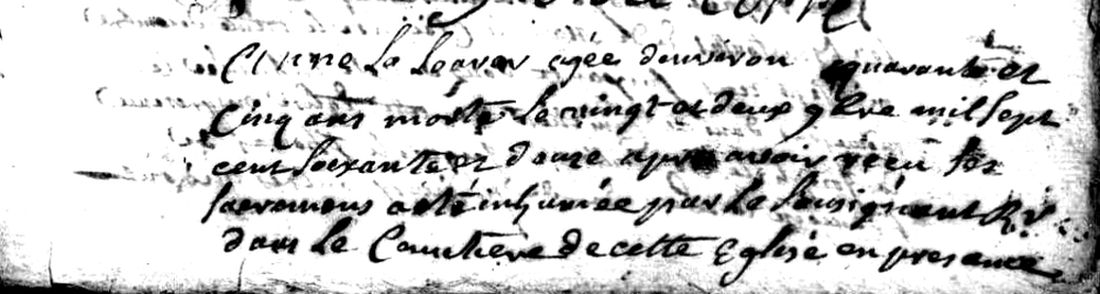 Anne La agée denviron quarante et
Cinq ans morte Le vingt et deux 9bre mil sept
cent soixante et douze apres avoir recu ses
sacremens a été inhumée par Le soussignant
dans Le Cimetiere de cette Eglise en presence